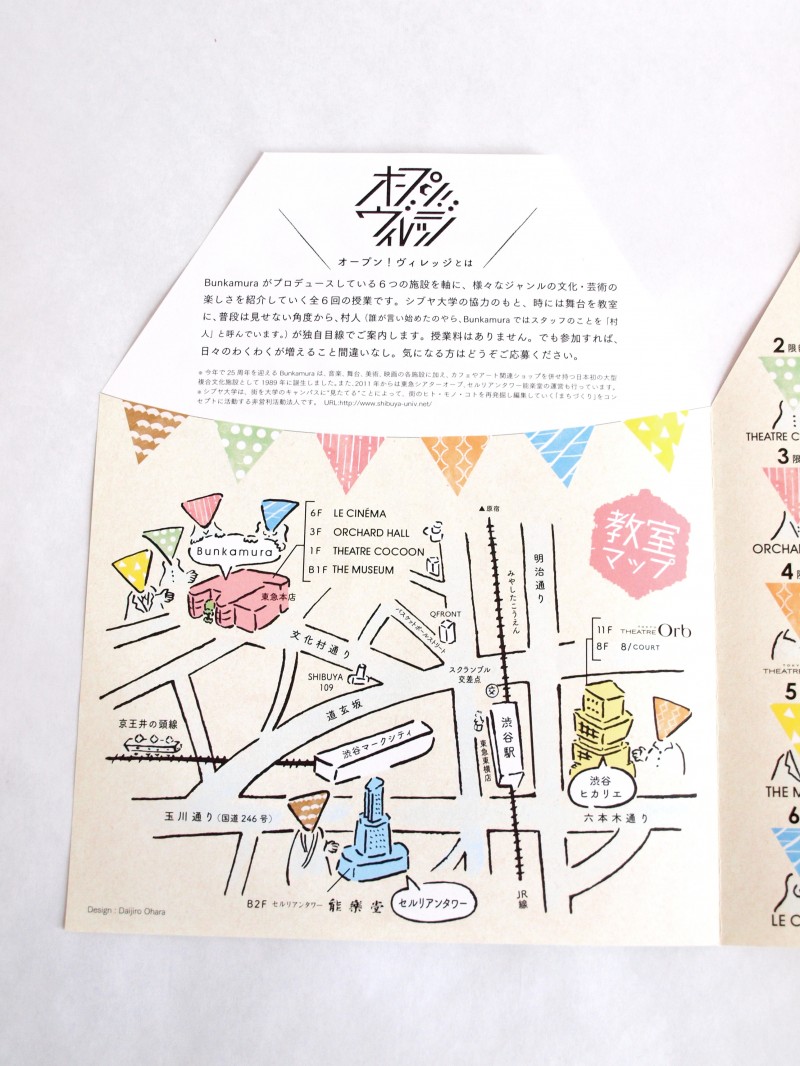 オープン!
ヴィレッジ
オープン!ヴィレッジとは
Bunkamura がプロデュースしている6つの施設を軸に、様々なジャンルの文化・芸術の
楽しさを紹介していく全6回の授業です。シブヤ大学の協力のもと、時には舞台を教室
に、普段は見せない角度から、村人(誰が言い始めたのやら、Bunkamura ではスタッフのことを「村
人」と呼んでいます。)が独自目線でご案内します。授業料はありません。でも参加すれば、
日々のわくわくが増えること間違いなし。気になる方はどうぞご応募ください。
※今年で25周年を迎える Bunkamura は、音楽、舞台、美術、映画の各施設に加え、カフェやアート関連ショップを併せ持つ日本初の大型
複合文化施設として 1989 年に誕生しました。また、2011 年からは東急シアターオーブ、セルリアンタワー能楽堂の運営も行っています。
※シブヤ大学は、街を大学のキャンパスに"見たてる"ことによって、街のヒト・モノ・コトを再発掘し編集していく「まちづくり」をコン
セプトに活動する非営利活動法人です。 URL:http://www.shibuya-univ.net/
教室
マップ
6F LE CINÉMA
3F ORCHARD HALL
1F THEATRE COCOON
B1F THE MUSEUM
Bunkamura
東急本店
▲原宿
みやしたこうえん
明治通り
QFRONT
バスケットボールストリート
文化村通り
SHIBUYA
109
スクランブル
交差点
道玄坂
11F TOKYU THEATRE Orb
8F 8/COURT
京王井の頭線
渋谷マークシティ
渋谷駅
東急東横店
渋谷
ヒカリエ
玉川通り(国道246号)
六本木通り
JR
線
B2F セルリアンタワー 能楽堂
セルリアンタワー
Design : Daijiro Ohara
2限
THEATRE C
3限
ORCHAR
4限
THEATRE
5
THE M
6
LE C